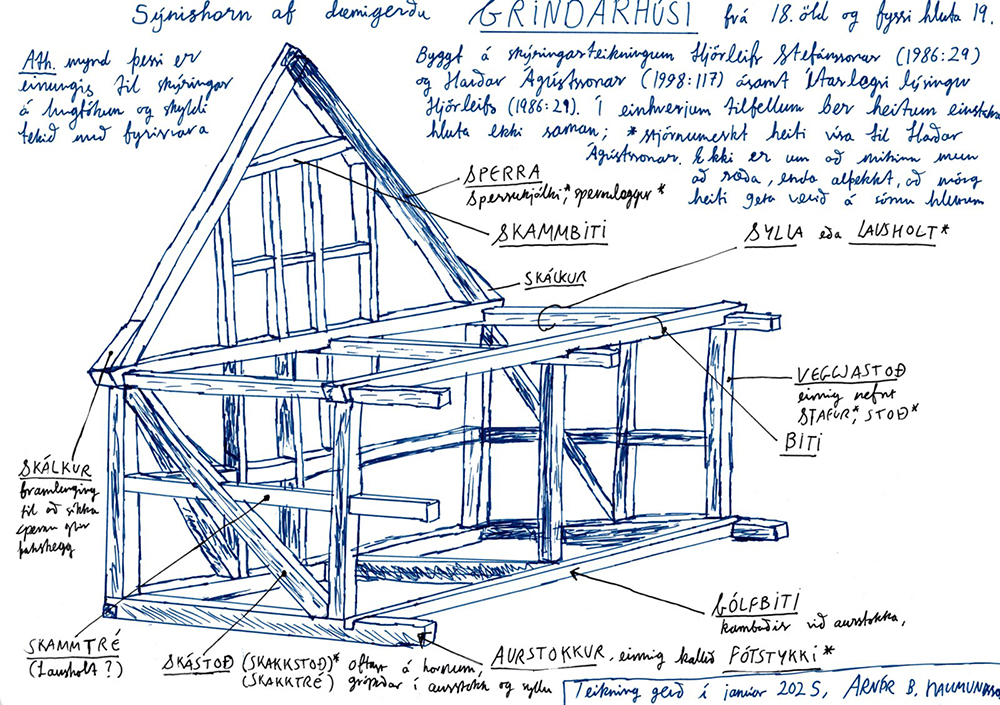 Sýnishorn af dæmigerðu GRINDARHÚSI frá 18. öld og fyrri hluta 19.
Ath. mynd þessi er
einungis til skýringar
á hugtökum og skyldi
tekið með fyrirvara
Byggt á skýringarteikningum Hjörleifs Stefánssonar (1986:29)
og Harðar Ágústssonar (1998:117) ásamt ítarlegri lýsingu
Hjörleifs (1986:29). Í einhverjum tilfellum ber heitum einstakra
hluta ekki saman; *stjörnumerkt heiti vísa til Harðar
Ágústssonar. Ekki er um að mikinn mun
að ræða, enda alþekkt, að mörg
heiti geta verið á sömu hlutum
SPERRA
Sperrukjálki*, sperruleggur*
SKAMMBITI
SYLLA eða LAUSHOLT*
SKÁLKUR
VEGGJASTOÐ
einnig nefnt
STAFUR*, STOÐ*
BITI
SKÁLKUR
framlenging
til að
sperru yfir
GÓLFBITI
við aurstokka,
SKAMMTRÉ
(Lausholt?)
SKÁSTOÐ (SKAKKSTOÐ)* oftast á hornum,
(SKAKKTRÉ) grópaðar í aurstokk og syllu
AURSTOKKUR, einnig kallið FÓTSTYKKI*
Teikning gerð í janúar 2025, ARNÓR B.